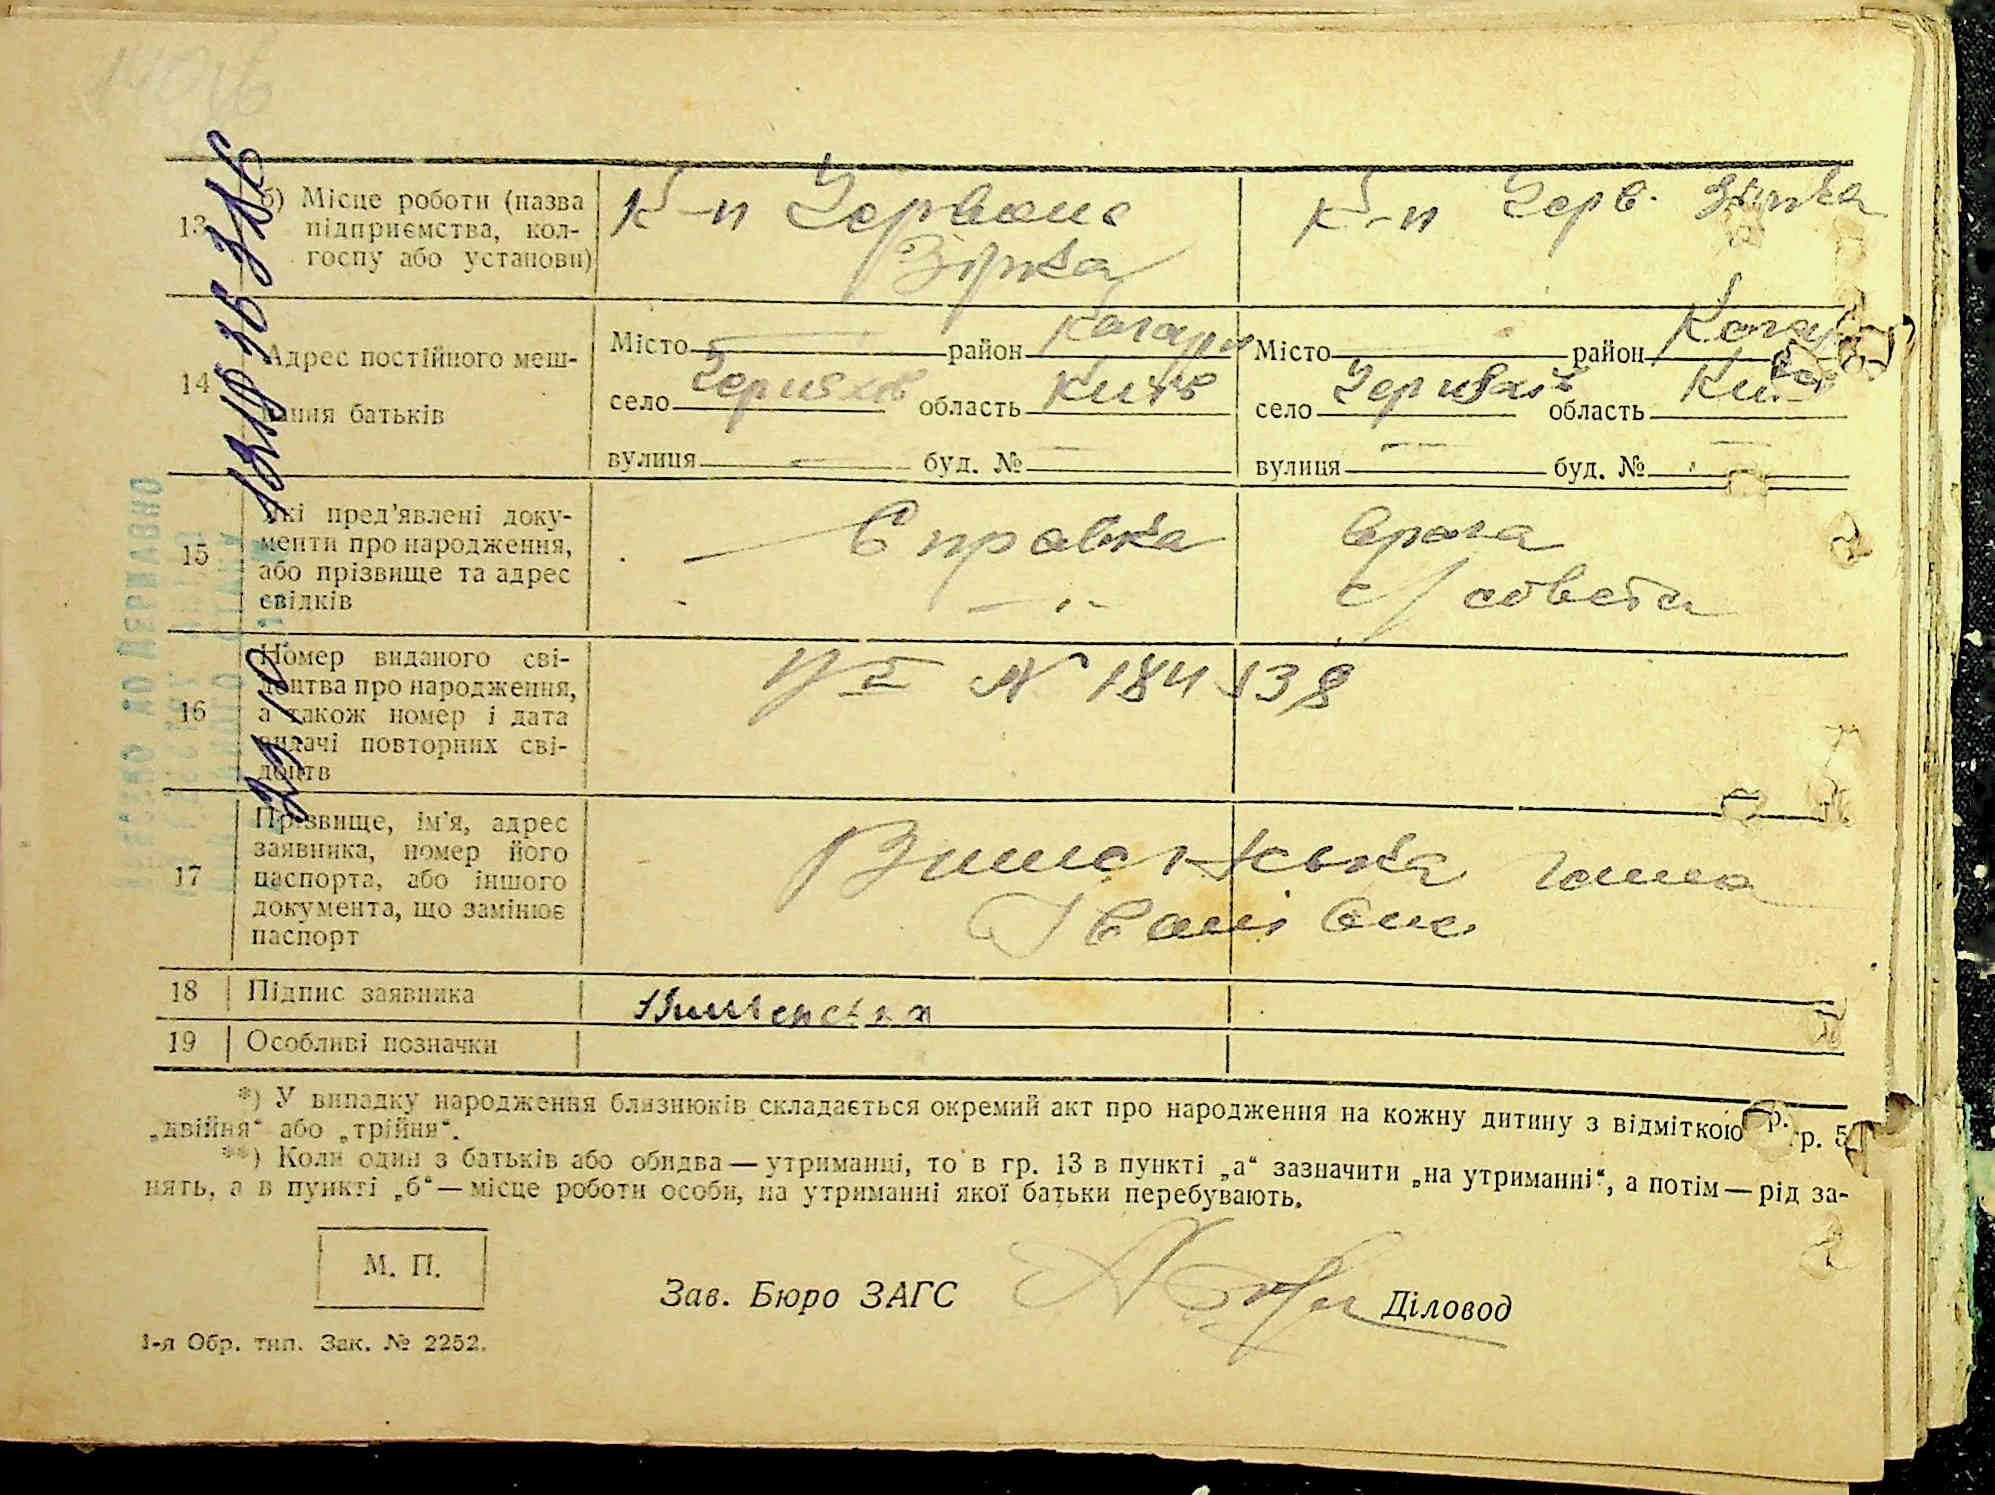 13
б) Місце роботи (назва
підприємства, кол-
госпу або установи)
К-п Червона
Зірка
К-п Черв. Зірка
14
Адрес постійного меш-
кання батьків
Місто район Кагарл
село Черняхів область Київ
вулиця буд. №
Місто район Кагар
село Черняхів область Київ
вулиця буд. №
15
Які пред'явлені доку-
менти про народження,
або прізвище та адрес
свідків
Справка врача
с/совета
16
Номер виданого сві-
доцтва про народження,
а також номер і дата
видачі повторних сві-
доцтв
N 184138
17
Прізвище, ім'я, адрес
заявника, номер його
паспорта, або іншого
документа, що замінює
паспорт
Ганна
Іванівна
18 Підпис заявника
19 Особливі позначки
*) У випадку народження близнюків складається окремий акт про народження на кожну дитину з відміткою гр. 5
„двійня“ або „трійня“.
**) Коли один з батьків або обидва — утриманці, то в гр. 13 в пункті „а“ зазначити „на утриманні“, а потім — рід за-
нять, а в пункті „б“ — місце роботи особи, на утриманні якої батьки перебувають.
М. П.
Зав. Бюро ЗАГС Діловод
1-я Обр. тип. Зак. № 2252.